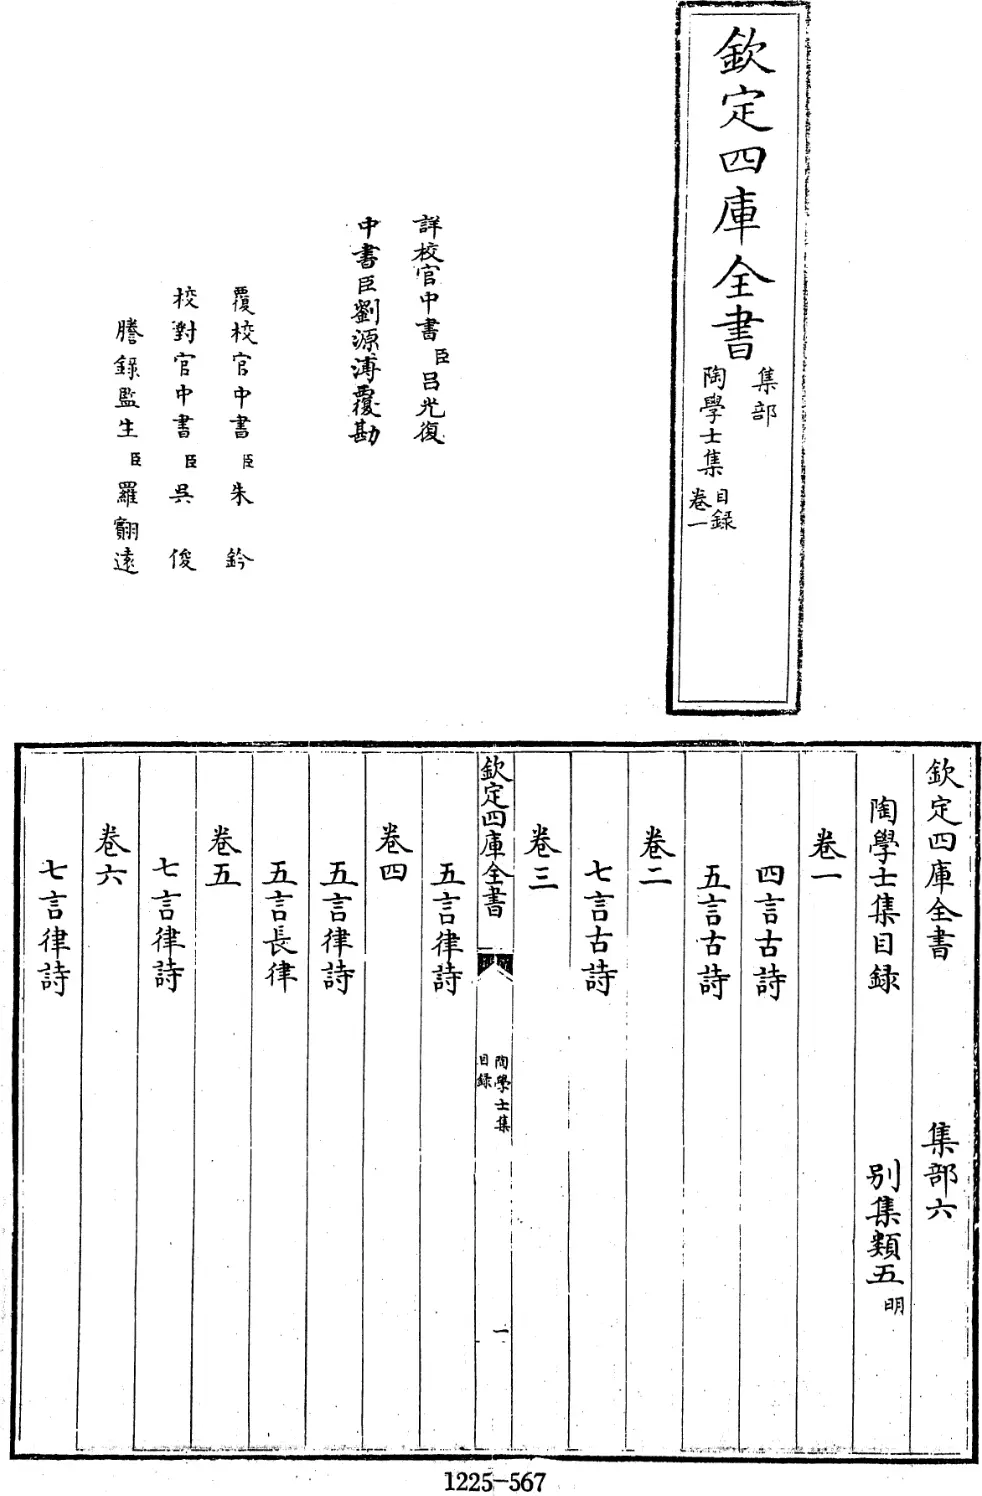 欽定四庫全書
集部
陶學士集
目録
卷一
詳校官中書臣吕光復
中書臣劉源溥覆勘
覆校官中書臣朱鈐
校對官中書臣吳俊
謄錄監生臣羅翽遠
欽定四庫全書 集部六
陶學士集目録 别集類五明
卷一
四言古詩
五言古詩
卷二
七言古詩
卷三
欽定四庫全書
陶學士集
目録
一
五言律詩
卷四
五言律詩
五言長律
卷五
七言律詩
卷六
七言律詩
1225-567